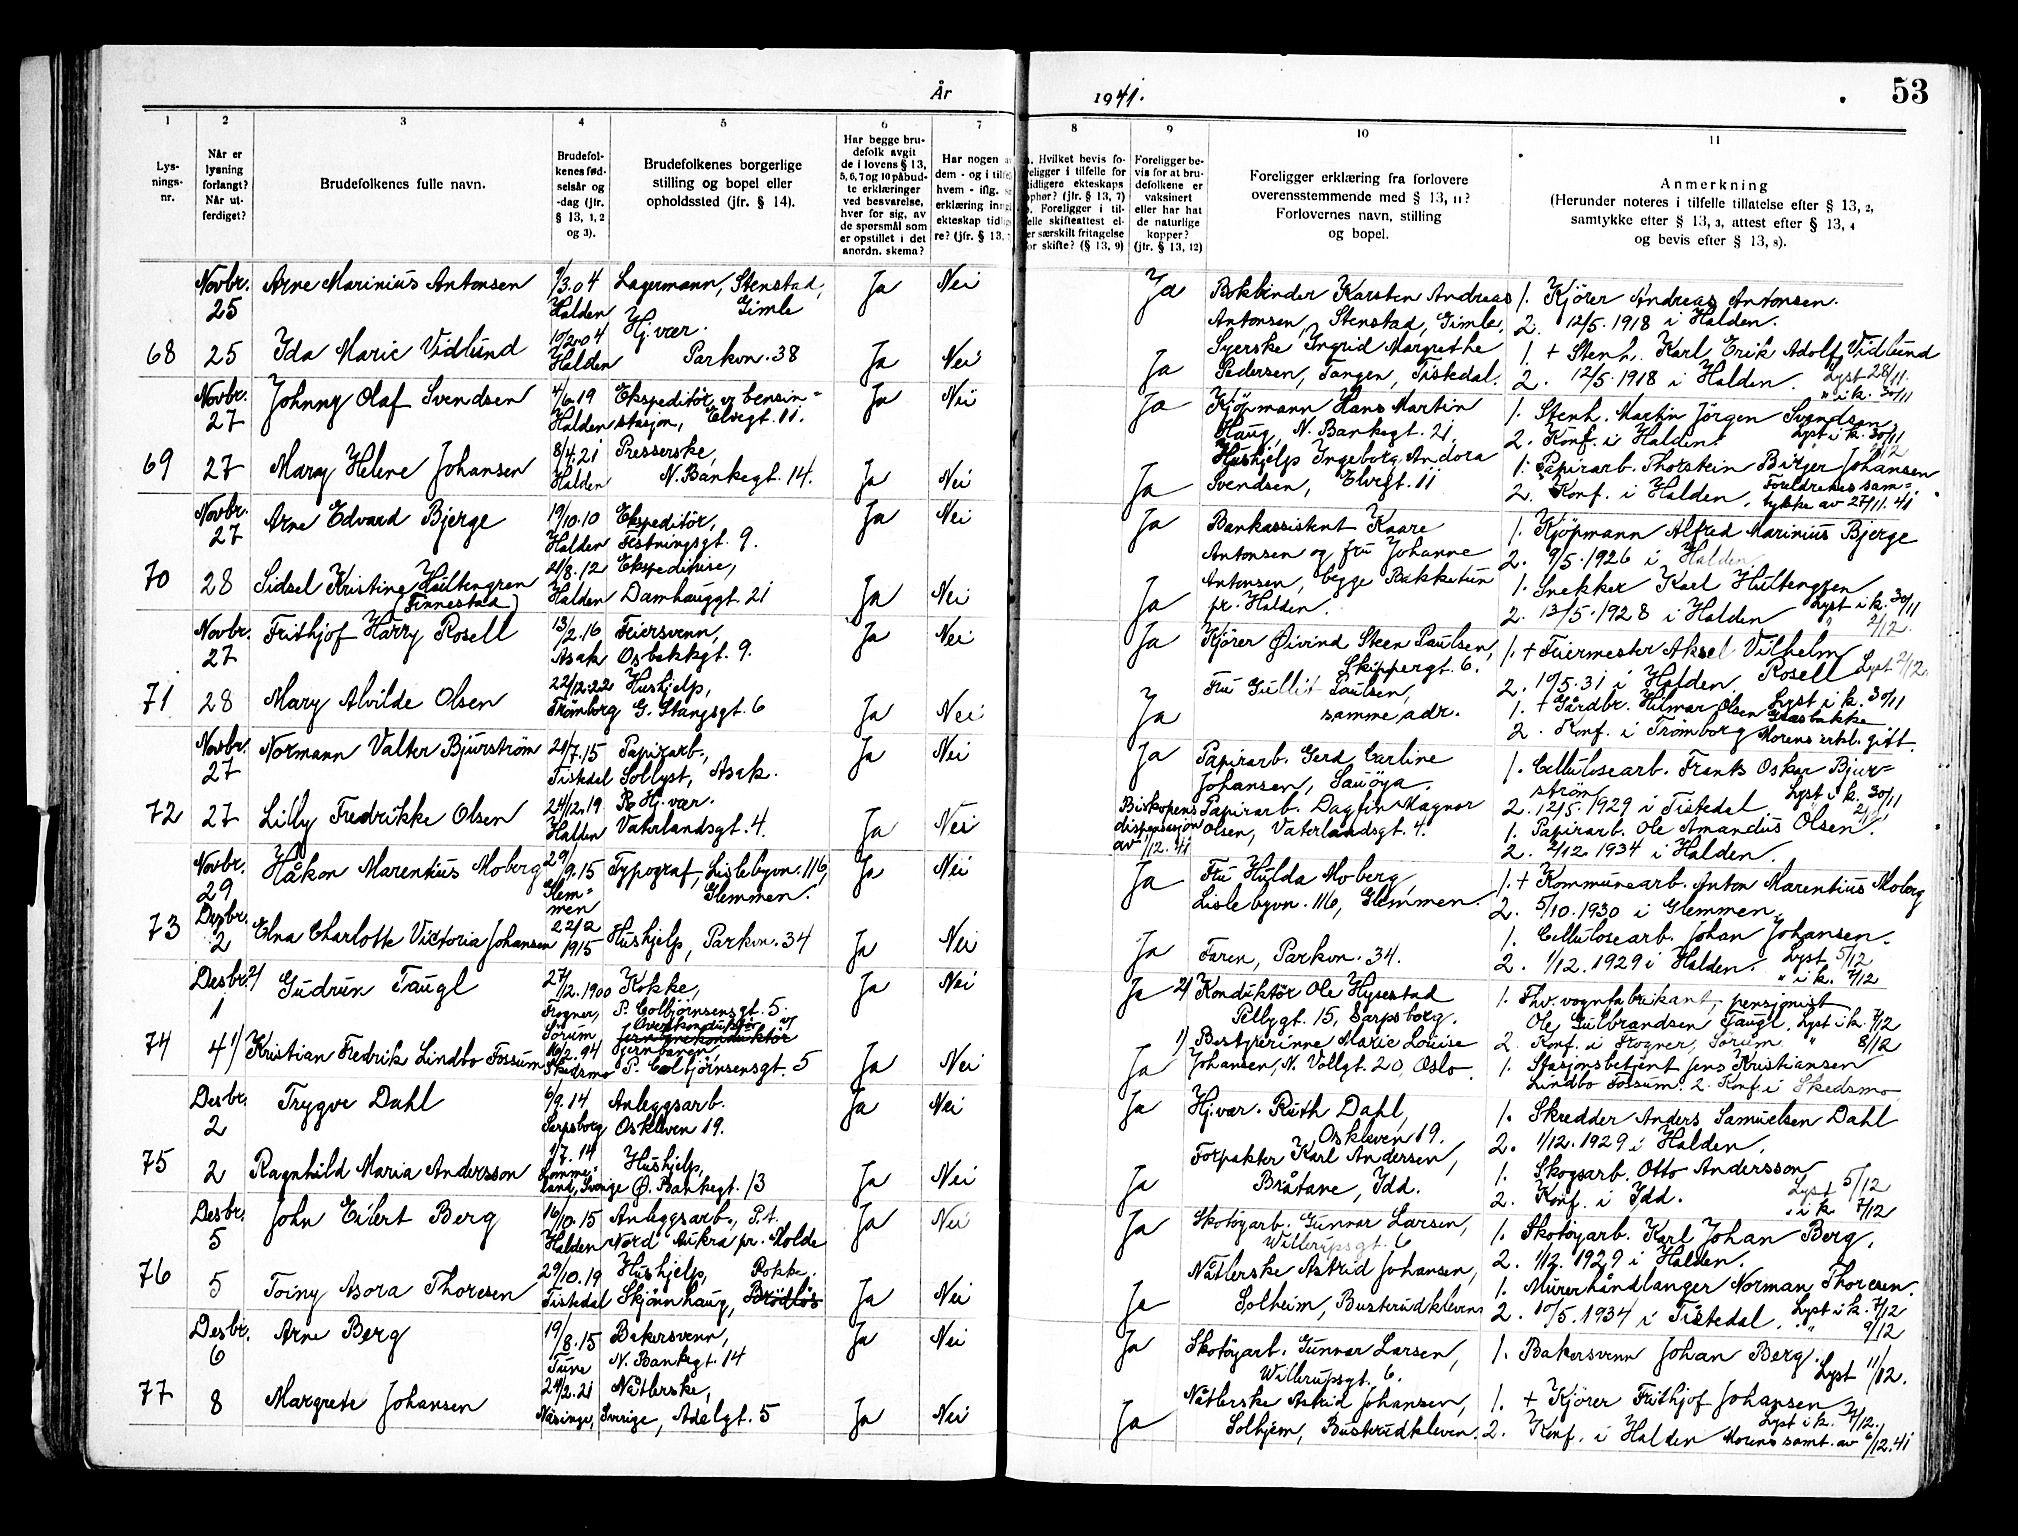 År 1941. 53
1 2 3 4 5 6 7 8 9 10 11
Lys-
nings-
nr.
Når er
lysning
forlangt?
Når ut-
ferdiget?
Brudefolkenes fulle navn.
Brudefol-
kenes fød-
selsår og
-dag (jfr.
§ 13, 1, 2
og 3).
Brudefolkenes borgerlige
stilling og bopel eller
opholdssted (jfr. § 14).
Har begge bru-
defolk avgit
de i lovens § 13,
5, 6, 7 og 10 påbud-
te erklæringer
ved besvarelse,
hver for sig, av
de spørsmål som
er opstillet i det
anordn. skema?
Har nogen
dem - og i tilf
hvem - iflg.
erklæring inng
ekteskap tidlig
re? (jfr. § 13,
Hvilket bevis fo-
religger i tilfelle for
tidligere ekteskaps
ophør? (jfr. § 13, 7)
Foreligger i til-
felle skifteattest el-
er særskilt fritagelse
for skifte? (§ 13, 9)
Foreligger be-
vis for at bru-
defolkene er
vaksinert
eller har hat
de naturlige
kopper?
(jfr. § 13, 12)
Foreligger erklæring fra forlovere
overensstemmende med § 13, 11?
Forlovernes navn, stilling
og bopel.
Anmerkning
(Herunder noteres i tilfelle tillatelse efter § 13, 2,
samtykke efter § 13, 3, attest efter § 13, 4
og bevis efter § 13, 8).
Novbr.
25
Arne Marinius Antonsen
9/3.04
Halden
Lagermann, Stenstad,
Gimle
Ja Nei Ja
Bokbinder Karsten Andreas
Antonsen, Stenstad, Gimle.
1. Kjörer Andreas Antonsen.
2. 12/5. 1918 i Halden.
68 25
Ida Marie Vidlund
10/2.04
Halden
Hj. vær.
Parkvn. 38
Ja Nei Ja
Syerske Ingrid Margrethe
Pedersen, Tangen, Tistedal.
1. + Stenh. Karl Erik Adolf Vidlund
2. 12/5. 1918 i Halden. Lyst 28/11.
" i k. 30/11
Novbr.
27
Johnny Olaf Svendsen
4/6.19
Halden
Ekspeditör v/ bensin=
stasjon, Elvegt. 11.
Ja Nei Ja
Kjöpmann Hans Martin
Haug, N. Bankegt. 21.
1. Stenh. Martin Jörgen Svendsen.
2. Konf. i Halden. Lyst i k. 30/11
69 27
Mary Helene Johansen
8/4.21
Halden
Presserske,
N. Bankegt. 14.
Ja Nei Ja
Hushjelp Ingeborg Andora
Svendsen, Elvegt. 11
1. Papirarb. Thorstein Birger Johansen
2. Konf. i Halden. Foreldrenes sam=
tykke av 27/11. 41.
Novbr.
27
Arne Edvard Bjerge
19/10.10
Halden
Ekspeditör,
Festningsgt. 9.
Ja Nei Ja
Bankassistent Kaare
Antonsen og fru Johanne
1. Kjöpmann Alfred Marinius Bjerge
2. 9/5. 1926 i Halden
70 28
Sidsel Kristine Hultengren
(Finnestad)
21/8. 12
Halden
Ekspeditrise,
Damhauggt. 21
Ja Nei Ja
Antonsen, begge Bakketun
pr. Halden.
1. Snekker Karl Hultengren
2. 13/5. 1928 i Halden Lyst i k. 30/11
" 7/12.
Novbr.
27
Frithjof Harry Rosell
13/2.16
Asak
Feiersvenn,
Osbekkgt. 9.
Ja Nei Ja
Kjörer Øivind Steen Paulsen,
Skippergt. 6.
1. + Feiermester Aksel Vilhelm
Rosell Lyst 2/12.
2. 10/5. 31 i Halden.
71 28
Mary Alvilde Olsen
22/12.22
Trømborg
Hushjelp,
G. Stangsgt. 6
Ja Nei Ja
Fru Gullit Paulsen,
samme adr.
Lyst i k. 30/11
1. + Gårdbr. Hilmar Olsen Græsbakke
2. Konf. i Trømborg Morens erkl. gitt.
Novbr.
27
Normann Valter Bjurström
21/7.15
Tistedal
Papirarb.,
Sollyst, Asak.
Ja Nei Ja
Papirarb. Gerd Carline
Johansen, Sauöya.
1. Cellulosearb. Frants Oskar Bjur=
ström Lyst i k. 30/11
2. 12/5. 1929 i Tistedal
72 27
Lilly Fredrikke Olsen
24/12.19
Halden
Hj. vær.
Vaterlandsgt. 4.
Ja Nei
Biskopens
dispensasjon
av 1/12. 41
Papirarb. Dagfin Magnar
Olsen, Vaterlandsgt. 4.
1. Papirarb. Ole Amandus Olsen.
2. 2/12. 1934 i Halden.
Novbr.
29
Håkon Marentius Moberg
29/9.15
Glem=
men
Typograf, Lislebyvn. 116,
Glemmen.
Ja Nei Ja
Fru Hulda Moberg,
Lislebyvn. 116, Glemmen.
1. + Kommunearb. Anton Marentius Moberg
2. 5/10. 1930 i Glemmen.
73
Desbr.
2
Elna Charlotte Victoria Johansen
22/2
1915
Hushjelp, Parkvn. 34
Ja Nei Ja
Faren, Parkvn. 34.
1. Cellulosearb. Johan Johansen.
2. 1/12. 1929 i Halden. Lyst 5/12
" i k. 7/12
Desbr.
1
2) Gudrun Taugl
27/12.1900
Frogner,
Sörum
Kokke,
P. Colbjörnsensgt. 5.
Ja Nei Ja
2) Konduktör Ole Hysestad
Pellygt. 15, Sarpsborg.
1. Fhv. vognfabrikant, pensjonist
Ole Gulbrandsen Taugl. Lyst i k. 7/12
2. Konf. i Frogner, Sörum. " 8/12
74 4
1) Kristian Fredrik Lindbo Fossum
16/2. 94
Skedsmo
Overkonduktör v/
jernbanen,
P. Colbjörnsensgt. 5
Ja Nei Ja
1) Bestyrerinne Marie Louise
Johansen, N. Vollgt. 20, Oslo.
1. Stasjonsbetjent Jens Kristiansen
Lindbo Fossum. 2. Konf. i Skedsmo
Desbr.
2
Trygve Dahl
6/9. 14
Sarpsborg
Anleggsarb.
Oskleven 19.
Ja Nei Ja
Hj. vær. Ruth Dahl,
Oskleven 19.
1. Skredder Anders Samuelsen Dahl
2. 1/12. 1929 i Halden.
75 2
Ragnhild Maria Andersson
1/7. 14
Lomme=
land, Sverige
Hushjelp,
Ø. Bankegt. 13
Ja Nei Ja
Forpakter Karl Andersen,
Bråtane, Idd.
1. Skogsarb. Otto Andersson
2. Konf. i Idd. Lyst 5/12
" i k 7/12
Desbr.
5
John Eilert Berg
16/10.15
Halden
Anleggsarb., P.t.
Nord Aukra pr. Molde
Ja Nei Ja
Skotöyarb. Gunnar Larsen,
Willerupsgt. 6
1. Skotöyarb. Karl Johan Berg.
2. 1/12. 1929 i Halden.
76 5
Toiny Asora Thoresen
29/10.19
Tistedal
Hushjelp, Rokke.
Skjönnhaug, Brödlös
Ja Nei Ja
Nåtlerske Astrid Johansen,
Solheim, Busterudkleven
1. Murerhåndlanger Norman Thoresen.
2. 10/5. 1934 i Tistedal. Lyst i k. 7/12
" 9/12
Desbr.
6
Arne Berg
19/8.15
Tune
Bakersvenn,
N. Bankegt. 14
Ja Nei Ja
Skotöyarb. Gunnar Larsen,
Willerupsgt. 6.
1. Bakersvenn Johan Berg.
Lyst 11/12.
77 8
Margrete Johansen
24/2. 21
Näsinge, Sverige
Nåtlerske,
Adelgt. 5
Ja Nei Ja
Nåtlerske Astrid Johansen,
Solhjem, Busterudkleven.
1. + Kjörer Frithjof Johansen
Lyst i k. 7/12.
2. Konf. i Halden Morens samt. av 6/12. 41